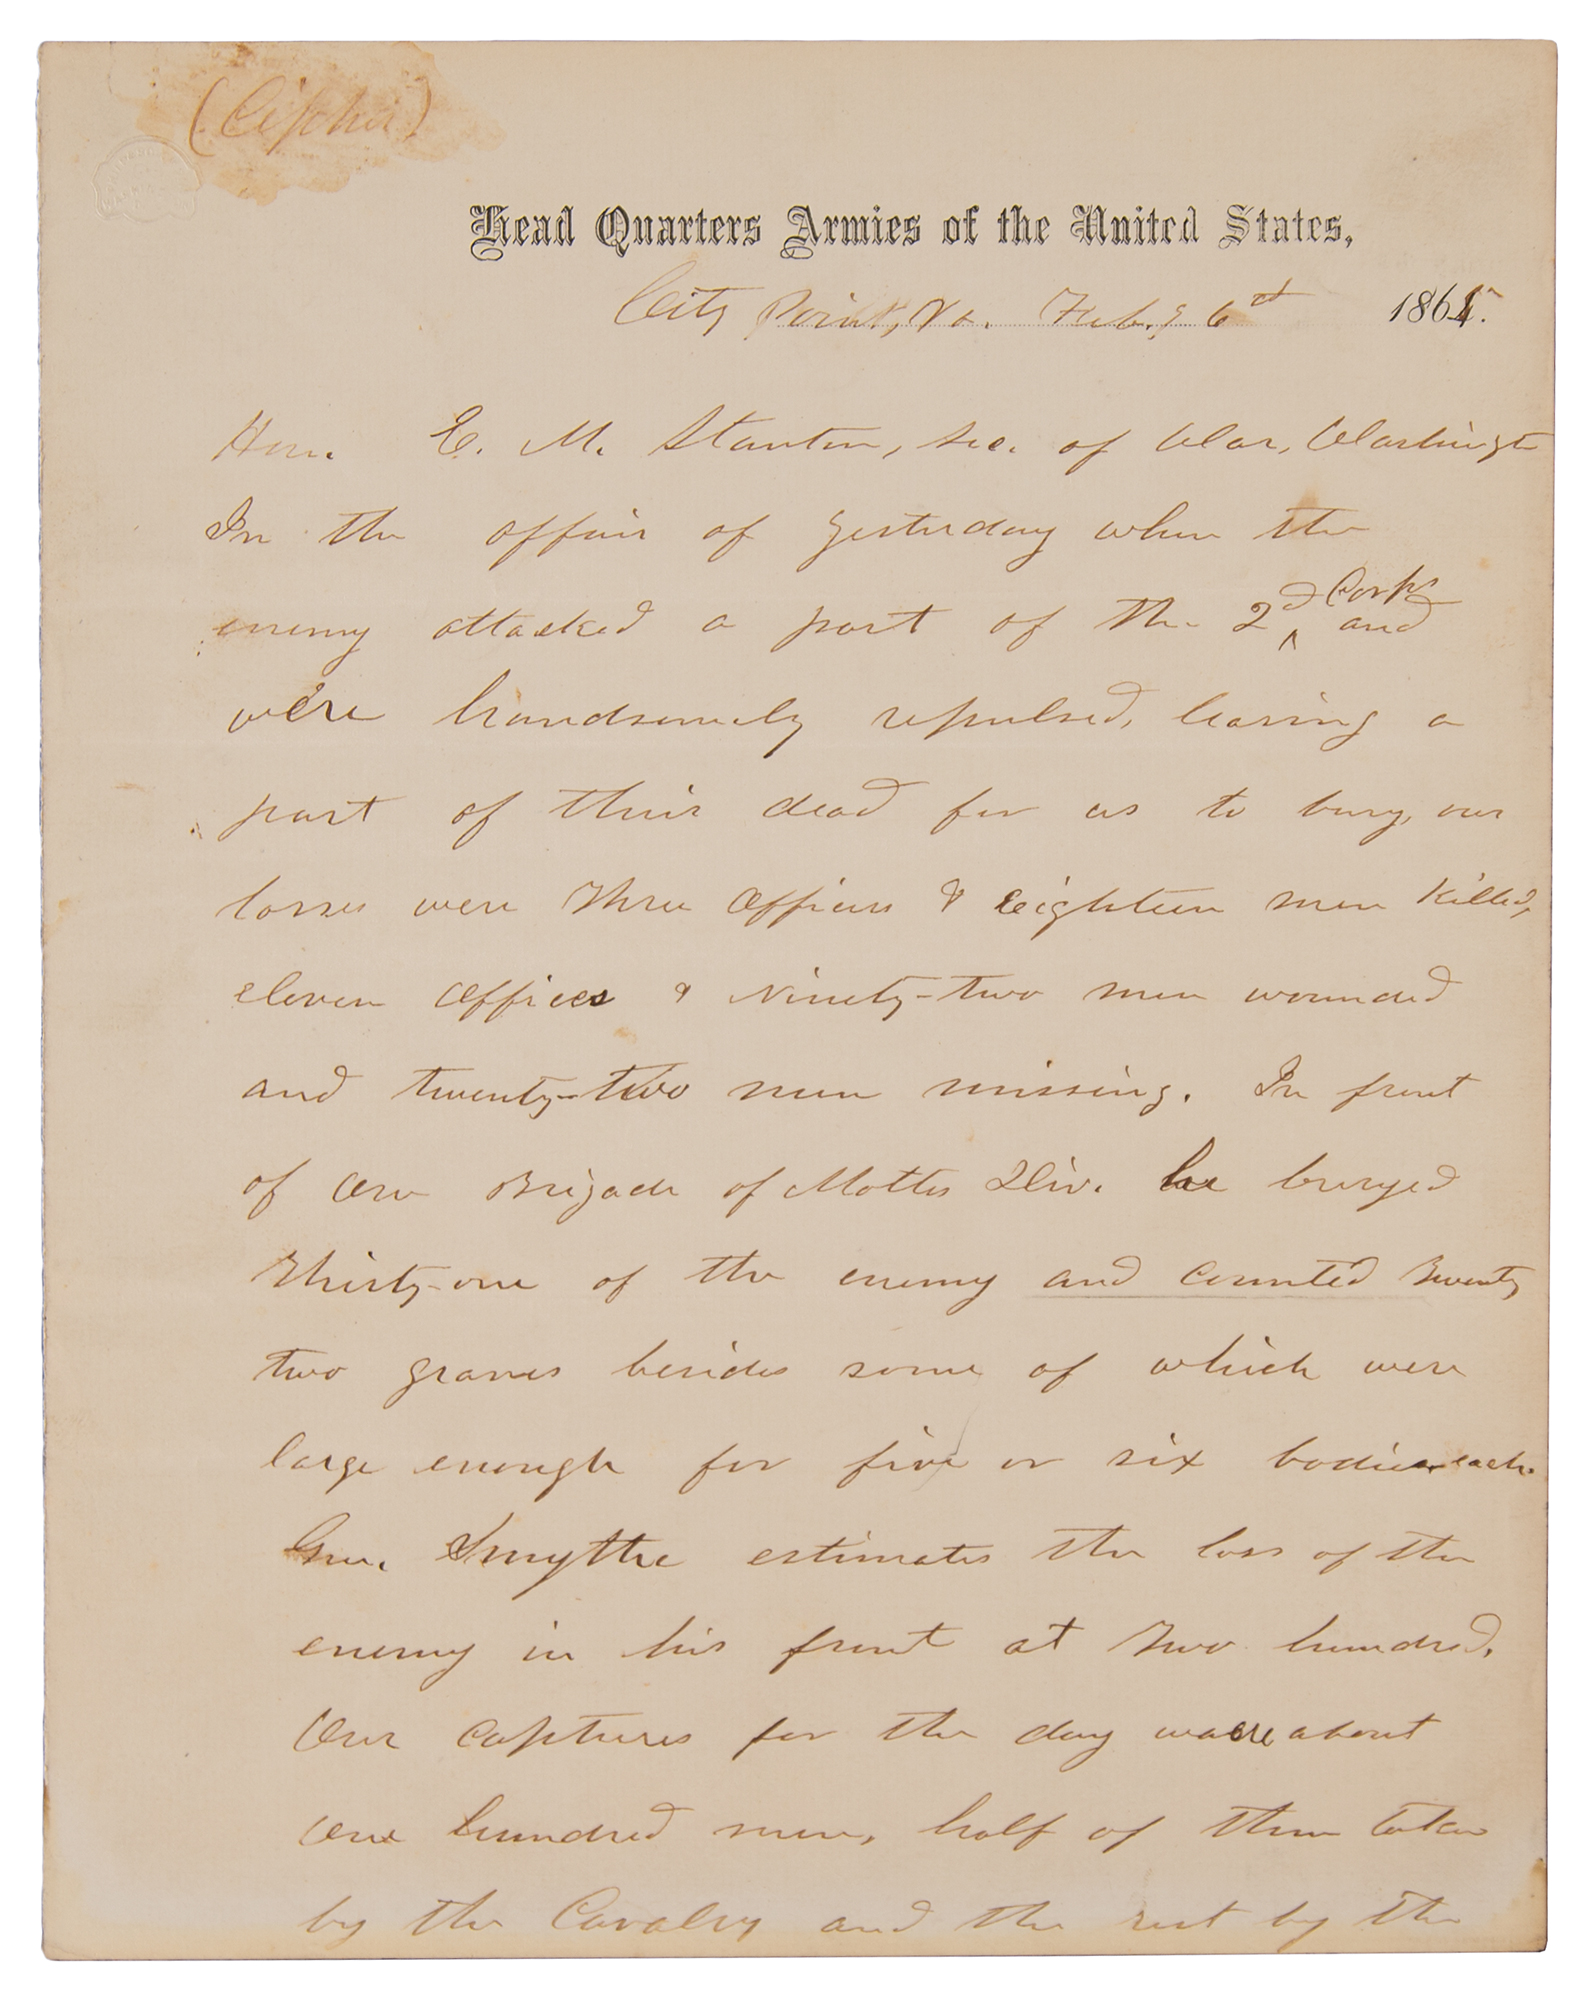 (Cipher)
Head Quarters Armies of the United States,
City Point, Va. Feb.y 6th 1865.
Hon. E. M. Stanton, Sec. of War, Washington
In the affair of yesterday when the
enemy attacked a part of the 2d Corps and
were handsomely repulsed, leaving a
part of their dead for us to bury, our
losses were three officers & eighteen men killed,
eleven officers & ninety-two men wounded
and twenty-two men missing. In front
of one Brigade of Motts Div. he buryed
thirty-one of the enemy and counted twenty
two graves besides some of which were
large enough for five or six bodies each.
Gen. Smythe estimates the loss of the
enemy in his front at two hundred.
Our captures for the day were about
one hundred men, half of them taken
by the Cavalry and the rest by the